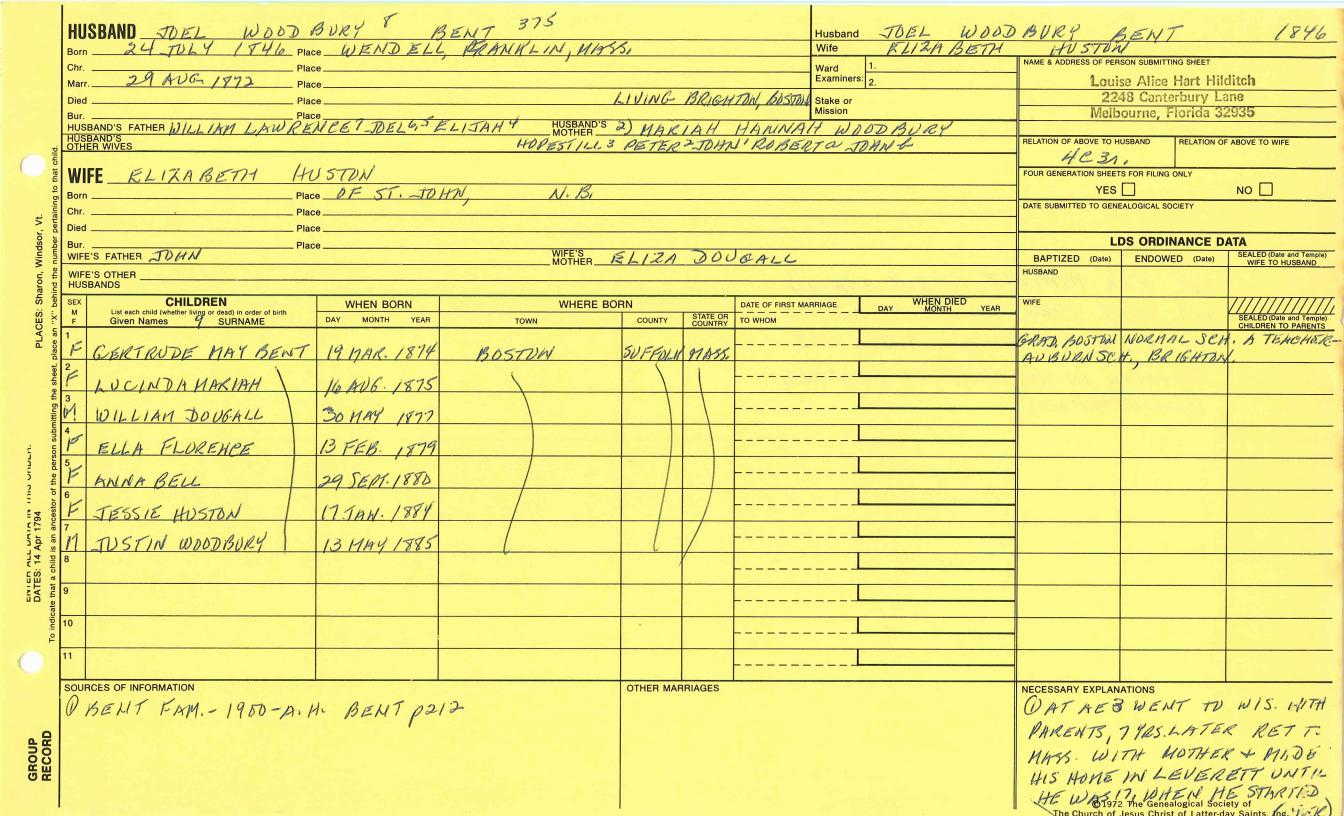 HUSBAND JOEL WOODBURY 8 BENT 375
Born 24 JULY 1846 Place WENDELL, FRANKLIN, MASS.
Chr. Place
Marr. 29 AUG 1872 Place
Died Place LIVING BRIGHTON, BOSTON
Bur. Place
HUSBAND'S FATHER WILLIAM LAWRENCE 7 JOEL 6,5 ELIJAH 4 HUSBAND'S MOTHER 2) MARIAH HANNAH WOODBURY
HUSBAND'S OTHER WIVES HOPESTILL 3 PETER 2 JOHN 1 ROBERT a JOHN b
Husband JOEL WOODBURY BENT 1846
Wife ELIZABETH HUSTON
Ward Examiners: 1.
2.
Stake or Mission
NAME & ADDRESS OF PERSON SUBMITTING SHEET
Louise Alice Hart Hilditch
2248 Canterbury Lane
Melbourne, Florida 32935
RELATION OF ABOVE TO HUSBAND RELATION OF ABOVE TO WIFE
4C3r.
FOUR GENERATION SHEETS FOR FILING ONLY
YES NO
DATE SUBMITTED TO GENEALOGICAL SOCIETY
WIFE ELIZABETH HUSTON
Born Place OF ST. JOHN, N.B.
Chr. Place
Died Place
Bur. Place
WIFE'S FATHER JOHN WIFE'S MOTHER ELIZA DOUGALL
WIFE'S OTHER HUSBANDS
LDS ORDINANCE DATA
BAPTIZED (Date) ENDOWED (Date) SEALED (Date and Temple) WIFE TO HUSBAND
HUSBAND
WIFE
SEALED (Date and Temple) CHILDREN TO PARENTS
SEX M F CHILDREN WHEN BORN WHERE BORN DATE OF FIRST MARRIAGE WHEN DIED
List each child (whether living or dead) in order of birth
Given Names 9 SURNAME DAY MONTH YEAR TOWN COUNTY STATE OR COUNTRY TO WHOM DAY MONTH YEAR
1 F GERTRUDE MAY BENT 19 MAR. 1874 BOSTON SUFFOLK MASS. GRAD. BOSTON NORMAL SCH. A TEACHER-
AUBURN SCH., BRIGHTON.
2 F LUCINDA MARIAH 16 AUG. 1875
3 M WILLIAM DOUGALL 30 MAY 1877
4 F ELLA FLORENCE 13 FEB. 1879
5 F ANNA BELL 29 SEPT. 1880
6 F JESSIE HUSTON 17 JAN. 1884
7 M JUSTIN WOODBURY 13 MAY 1885
8
9
10
11
SOURCES OF INFORMATION
① BENT FAM. - 1900 - A.H. BENT p212
OTHER MARRIAGES
NECESSARY EXPLANATIONS
① AT AE 3 WENT TO WIS. WITH
PARENTS, 7 YRS. LATER RET T.
MASS. WITH MOTHER & MADE
HIS HOME IN LEVERETT UNTIL
HE WAS 17, WHEN HE STARTED
©1972 The Genealogical Society of
The Church of Jesus Christ of Latter-day Saints, Inc.
PLACES: Sharon, Windsor, Vt.
ENTER ALL DATA IN THIS ORDER:
DATES: 14 Apr 1794
To indicate that a child is an ancestor of the person submitting the sheet, place an "X" behind the number pertaining to that child.
GROUP RECORD